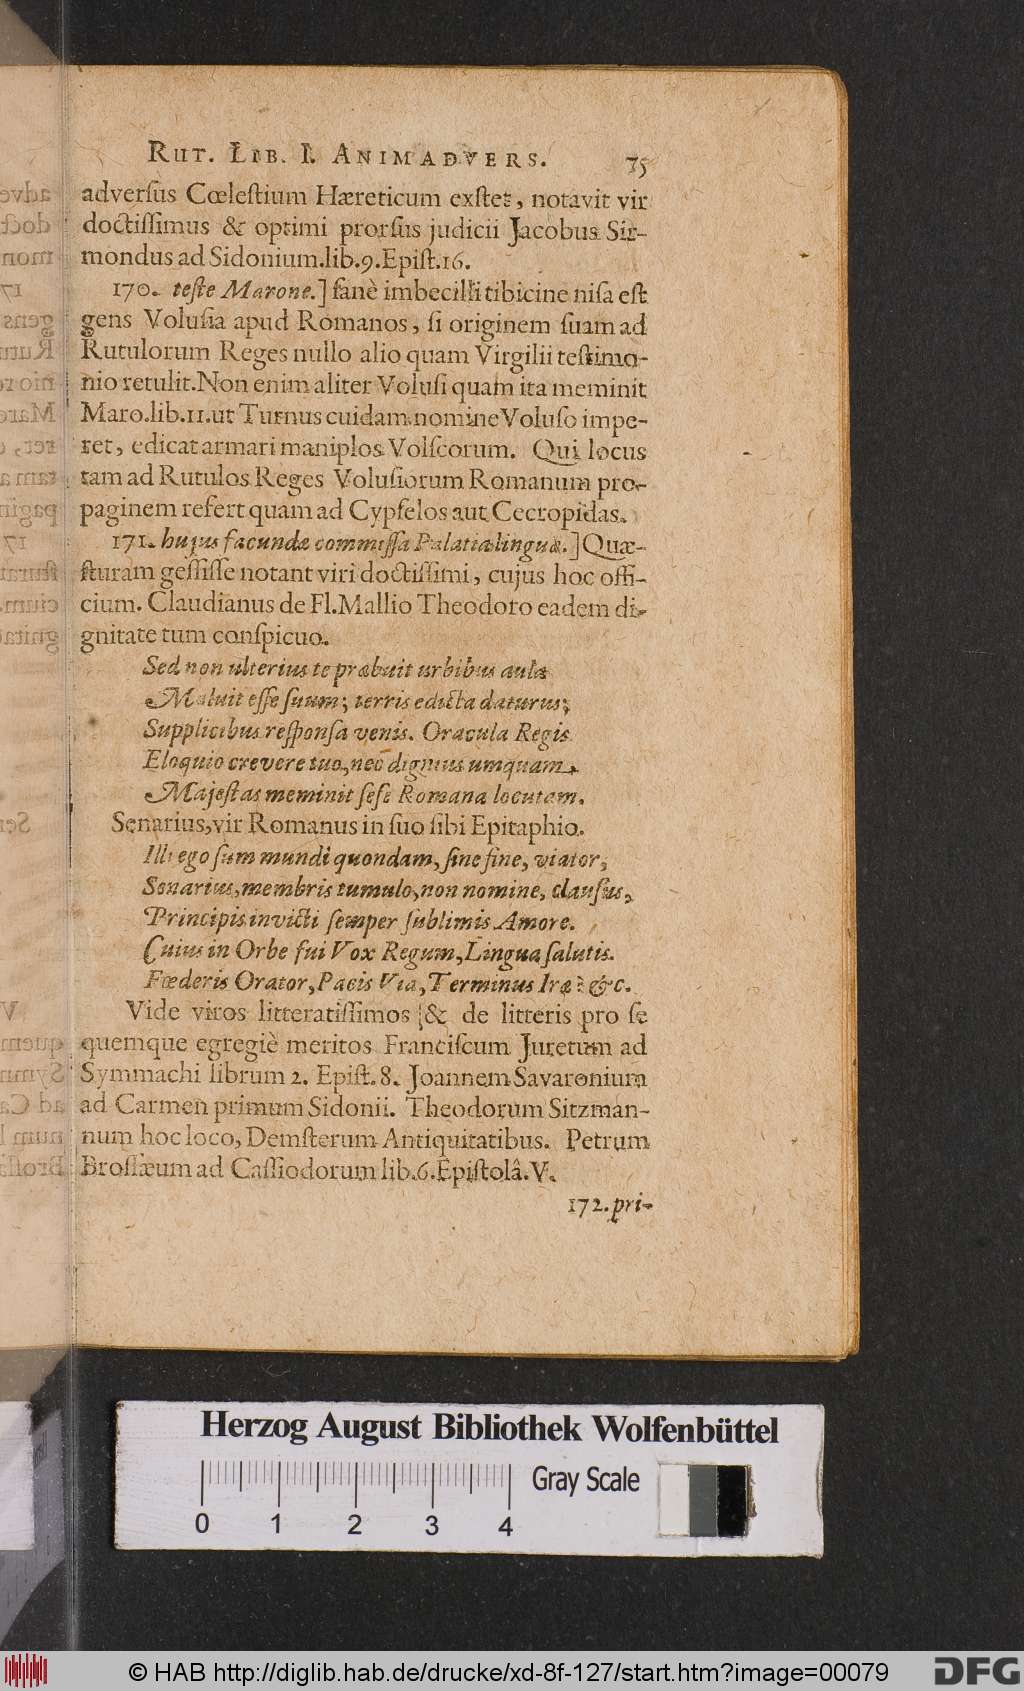 RUT. LIB. I. ANIMADVERS. 75
adverſus Cœleſtium Hæreticum exſtet, notavit vir
doctiſſimus & optimi prorſus judicii Jacobus Sir-
mondus ad Sidonium.lib.9.Epiſt.16.
170. teſte Marone.] ſanè imbecilli tibicine niſa eſt
gens Voluſia apud Romanos, ſi originem ſuam ad
Rutulorum Reges nullo alio quam Virgilii teſtimo-
nio retulit. Non enim aliter Voluſi quam ita meminit
Maro.lib.11.ut Turnus cuidam nomine Voluſo impe-
ret, edicat armari maniplos Volſcorum. Qui locus
tam ad Rutulos Reges Voluſiorum Romanum pro-
paginem refert quam ad Cypſelos aut Cecropidas.
171. hujus facundæ commiſſa Palatia linguæ.] Quæ-
ſturam geſſiſſe notant viri doctiſſimi, cujus hoc offi-
cium. Claudianus de Fl.Mallio Theodoro eadem di-
gnitate tum conſpicuo.
Sed non ulterius te præbuit urbibus aula
Maluit eſſe ſuum; terris edicta daturus;
Supplicibus reſponſa venis. Oracula Regis
Eloquio crevere tuo, nec dignius umquam
Majeſtas meminit ſeſe Romana locutam.
Senarius, vir Romanus in ſuo ſibi Epitaphio.
Ille ego ſum mundi quondam, ſine fine, viator,
Senarius, membris tumulo, non nomine, clauſus,
Principis invicti ſemper ſublimis Amore.
Cuius in Orbe fui Vox Regum, Lingua ſalutis.
Fœderis Orator, Pacis Via, Terminus Iræ: &c.
Vide viros litteratiſſimos & de litteris pro ſe
quemque egregiè meritos Franciſcum Juretum ad
Symmachi librum 2. Epiſt. 8. Joannem Savaronium
ad Carmen primum Sidonii. Theodorum Sitzman-
num hoc loco, Demſterum Antiquitatibus. Petrum
Broſſæum ad Caſſiodorum lib.6.Epiſtolâ.V.
172. pri-
Herzog August Bibliothek Wolfenbüttel
Gray Scale
0 1 2 3 4
© HAB http://diglib.hab.de/drucke/xd-8f-127/start.htm?image=00079
DFG